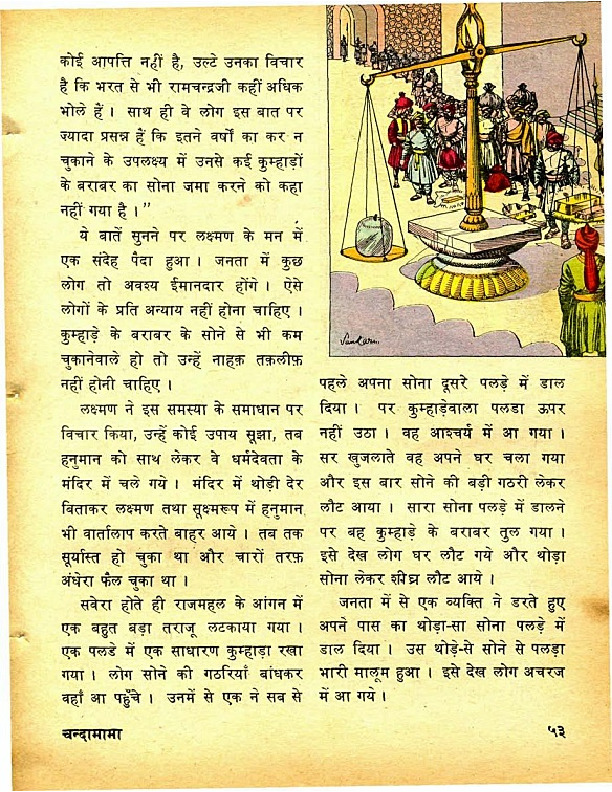 कोई आपत्ति नहीं है, उल्टे उनका विचार
है कि भरत से भी रामचन्द्रजी कहीं अधिक
भोले हैं । साथ ही वे लोग इस बात पर
ज्यादा प्रसन्न हैं कि इतने वर्षों का कर न
चुकाने के उपलक्ष्य में उनसे कई कुम्हाड़ों
के बराबर का सोना जमा करने को कहा
नहीं गया है ।”
ये बातें सुनने पर लक्ष्मण के मन में
एक संदेह पैदा हुआ । जनता में कुछ
लोग तो अवश्य ईमानदार होंगे । ऐसे
लोगों के प्रति अन्याय नहीं होना चाहिए ।
कुम्हाड़े के बराबर के सोने से भी कम
चुकानेवाले हो तो उन्हें नाहक़ तक़लीफ़
नहीं होनी चाहिए ।
लक्ष्मण ने इस समस्या के समाधान पर
विचार किया, उन्हें कोई उपाय सूझा, तब
हनुमान को साथ लेकर वे धर्मदेवता के
मंदिर में चले गये । मंदिर में थोड़ी देर
बिताकर लक्ष्मण तथा सूक्ष्मरूप में हनुमान
भी वार्तालाप करते बाहर आये । तब तक
सूर्यास्त हो चुका था और चारों तरफ़
अंधेरा फैल चुका था ॥
सवेरा होते ही राजमहल के आंगन में
एक बहुत बड़ा तराजू लटकाया गया ।
एक पलडे में एक साधारण कुम्हाड़ा रखा
गया । लोग सोने की गठरियाँ बांधकर
वहाँ आ पहुँचे । उनमें से एक ने सब से
पहले अपना सोना दूसरे पलड़े में डाल
दिया । पर कुम्हाड़ेवाला पलडा ऊपर
नहीं उठा । वह आश्चर्य में आ गया ।
सर खुजलाते वह अपने घर चला गया
और इस बार सोने की बड़ी गठरी लेकर
लौट आया । सारा सोना पलड़े में डालने
पर वह कुम्हाड़े के बराबर तुल गया ।
इसे देख लोग घर लौट गये और थोड़ा
सोना लेकर शीघ्र लौट आये ।
जनता में से एक व्यक्ति ने डरते हुए
अपने पास का थोड़ा-सा सोना पलड़े में
डाल दिया । उस थोड़े-से सोने से पलड़ा
भारी मालूम हुआ । इसे देख लोग अचरज
में आ गये ।
चन्दामामा
५३